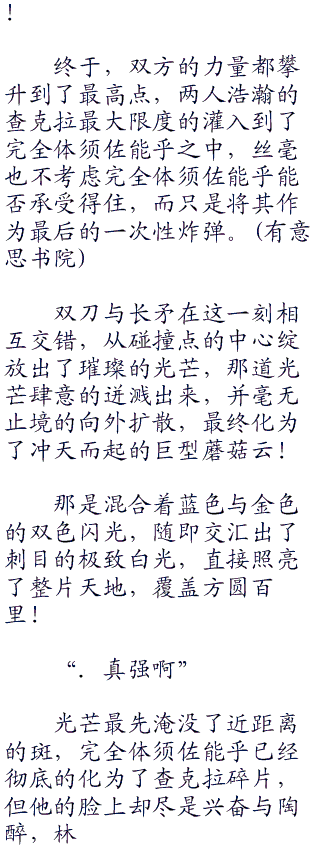 ！
终于，双方的力量都攀
升到了最高点，两人浩瀚的
查克拉最大限度的灌入到了
完全体须佐能乎之中，丝毫
也不考虑完全体须佐能乎能
否承受得住，而只是将其作
为最后的一次性炸弹。（有意
思书院）
双刀与长矛在这一刻相
互交错，从碰撞点的中心绽
放出了璀璨的光芒，那道光
芒肆意的迸溅出来，并毫无
止境的向外扩散，最终化为
了冲天而起的巨型蘑菇云！
那是混合着蓝色与金色
的双色闪光，随即交汇出了
刺目的极致白光，直接照亮
了整片天地，覆盖方圆百
里！
“．真强啊”
光芒最先淹没了近距离
的斑，完全体须佐能乎已经
彻底的化为了查克拉碎片，
但他的脸上却尽是兴奋与陶
醉，林